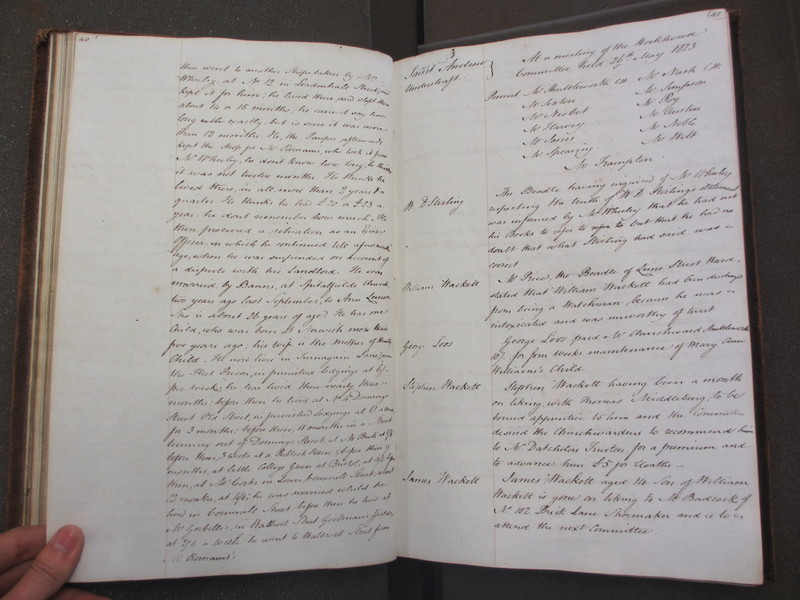 40
then went to another Shop taken by Mr
Wheeley at No 12 in Leadenhall Street; he
kept it for them; he lived there, and slept there
about 14 or 15 months; he cannot say how
long exactly but is sure it was more
than 12 months. He, the Pauper afterwards
kept the Shop for Mr Romanis, who took it from
Mr Wheeley, he dont know how long, he thinks
it was not twelve months. He thinks he
lived there, in all, more than 2 years & a
quarter. He thinks he had £20 or £23 a
year. he dont remember how much. He
then procured a situation as an Excise
Officer, in which he continued till
ago, when he was suspended on account of
a dispute with his Landlord. He was
married, by Banns, at Spitalfields Church
two years ago last September, to Ann Lemon
She is about 26 years of age. He has one
Child, who was born at Norwich more than
five years ago; his wife is the Mother of the
Child. He now lives in Turnagain Lane,
the Fleet Prison, in furnished lodgings at 6/-
per week; he has lived there nearly three
months; before then he lived at No 4 Domingo
Street Old Street, in furnished lodgings at
for 3 months; before then, 11 months in a Street
turning out of Domingo Street, at Mr
before then, 3 weeks at a Publick House; before then
months, at little College Green at Bristol, at
then, at Mr Coaks in Lower Cornwall Street, about
2 months, at 4/6; he was married whilst he
lived in Cornwall Street before then he lived at
Mr in Walbrook Street Goodman's fields,
at 7/6 a week he went to Street from
Mr Romanis.
41
3
Saint Andrew
Undershaft
At a meeting of the Workhouse
Committee held 26th May 1823
Present Mr Shuttleworth CW Mr Nash CW
Mr Sexton Mr Simpson
Mr Nisbet Mr Roy
Mr Harvey Mr Austin
Mr Sains Mr Noble
Mr Spearing Mr Wilt
Mr Frampton
W. D. Sterling
The Beadle having inquired of Mr Wheeley
respecting the truth of W D Sterling's statement
was informed by Mr Wheeley that he had not
his Books to refer to refer to but that he had no
doubt that what Sterling had said was
correct
William Wackett
Mr Price, the Beadle of Lime Street Ward,
stated that William Wackett had been discharged
from being a Watchman because he was
intoxicated and was unworthy of trust
George Loos
George Loos paid Mr Churchwarden Shuttleworth
10/. for four weeks maintenance of Mary Ann
Williams's Child.
Stephen Wackett
Stephen Wackett having been a month
on liking, with Thomas Middleburg, to be
bound apprentice to him and the Committee
desired the Churchwardens to recommend him
to Mr Datchelors Trustees for a premium and
to advance him £5 for cloaths —
James Wackett
James Wackett aged 14 Son of William
Wackett is gone on liking to Mr Badcock of
No 102 Brick Lane Shoemaker and is to
attend the next Committee